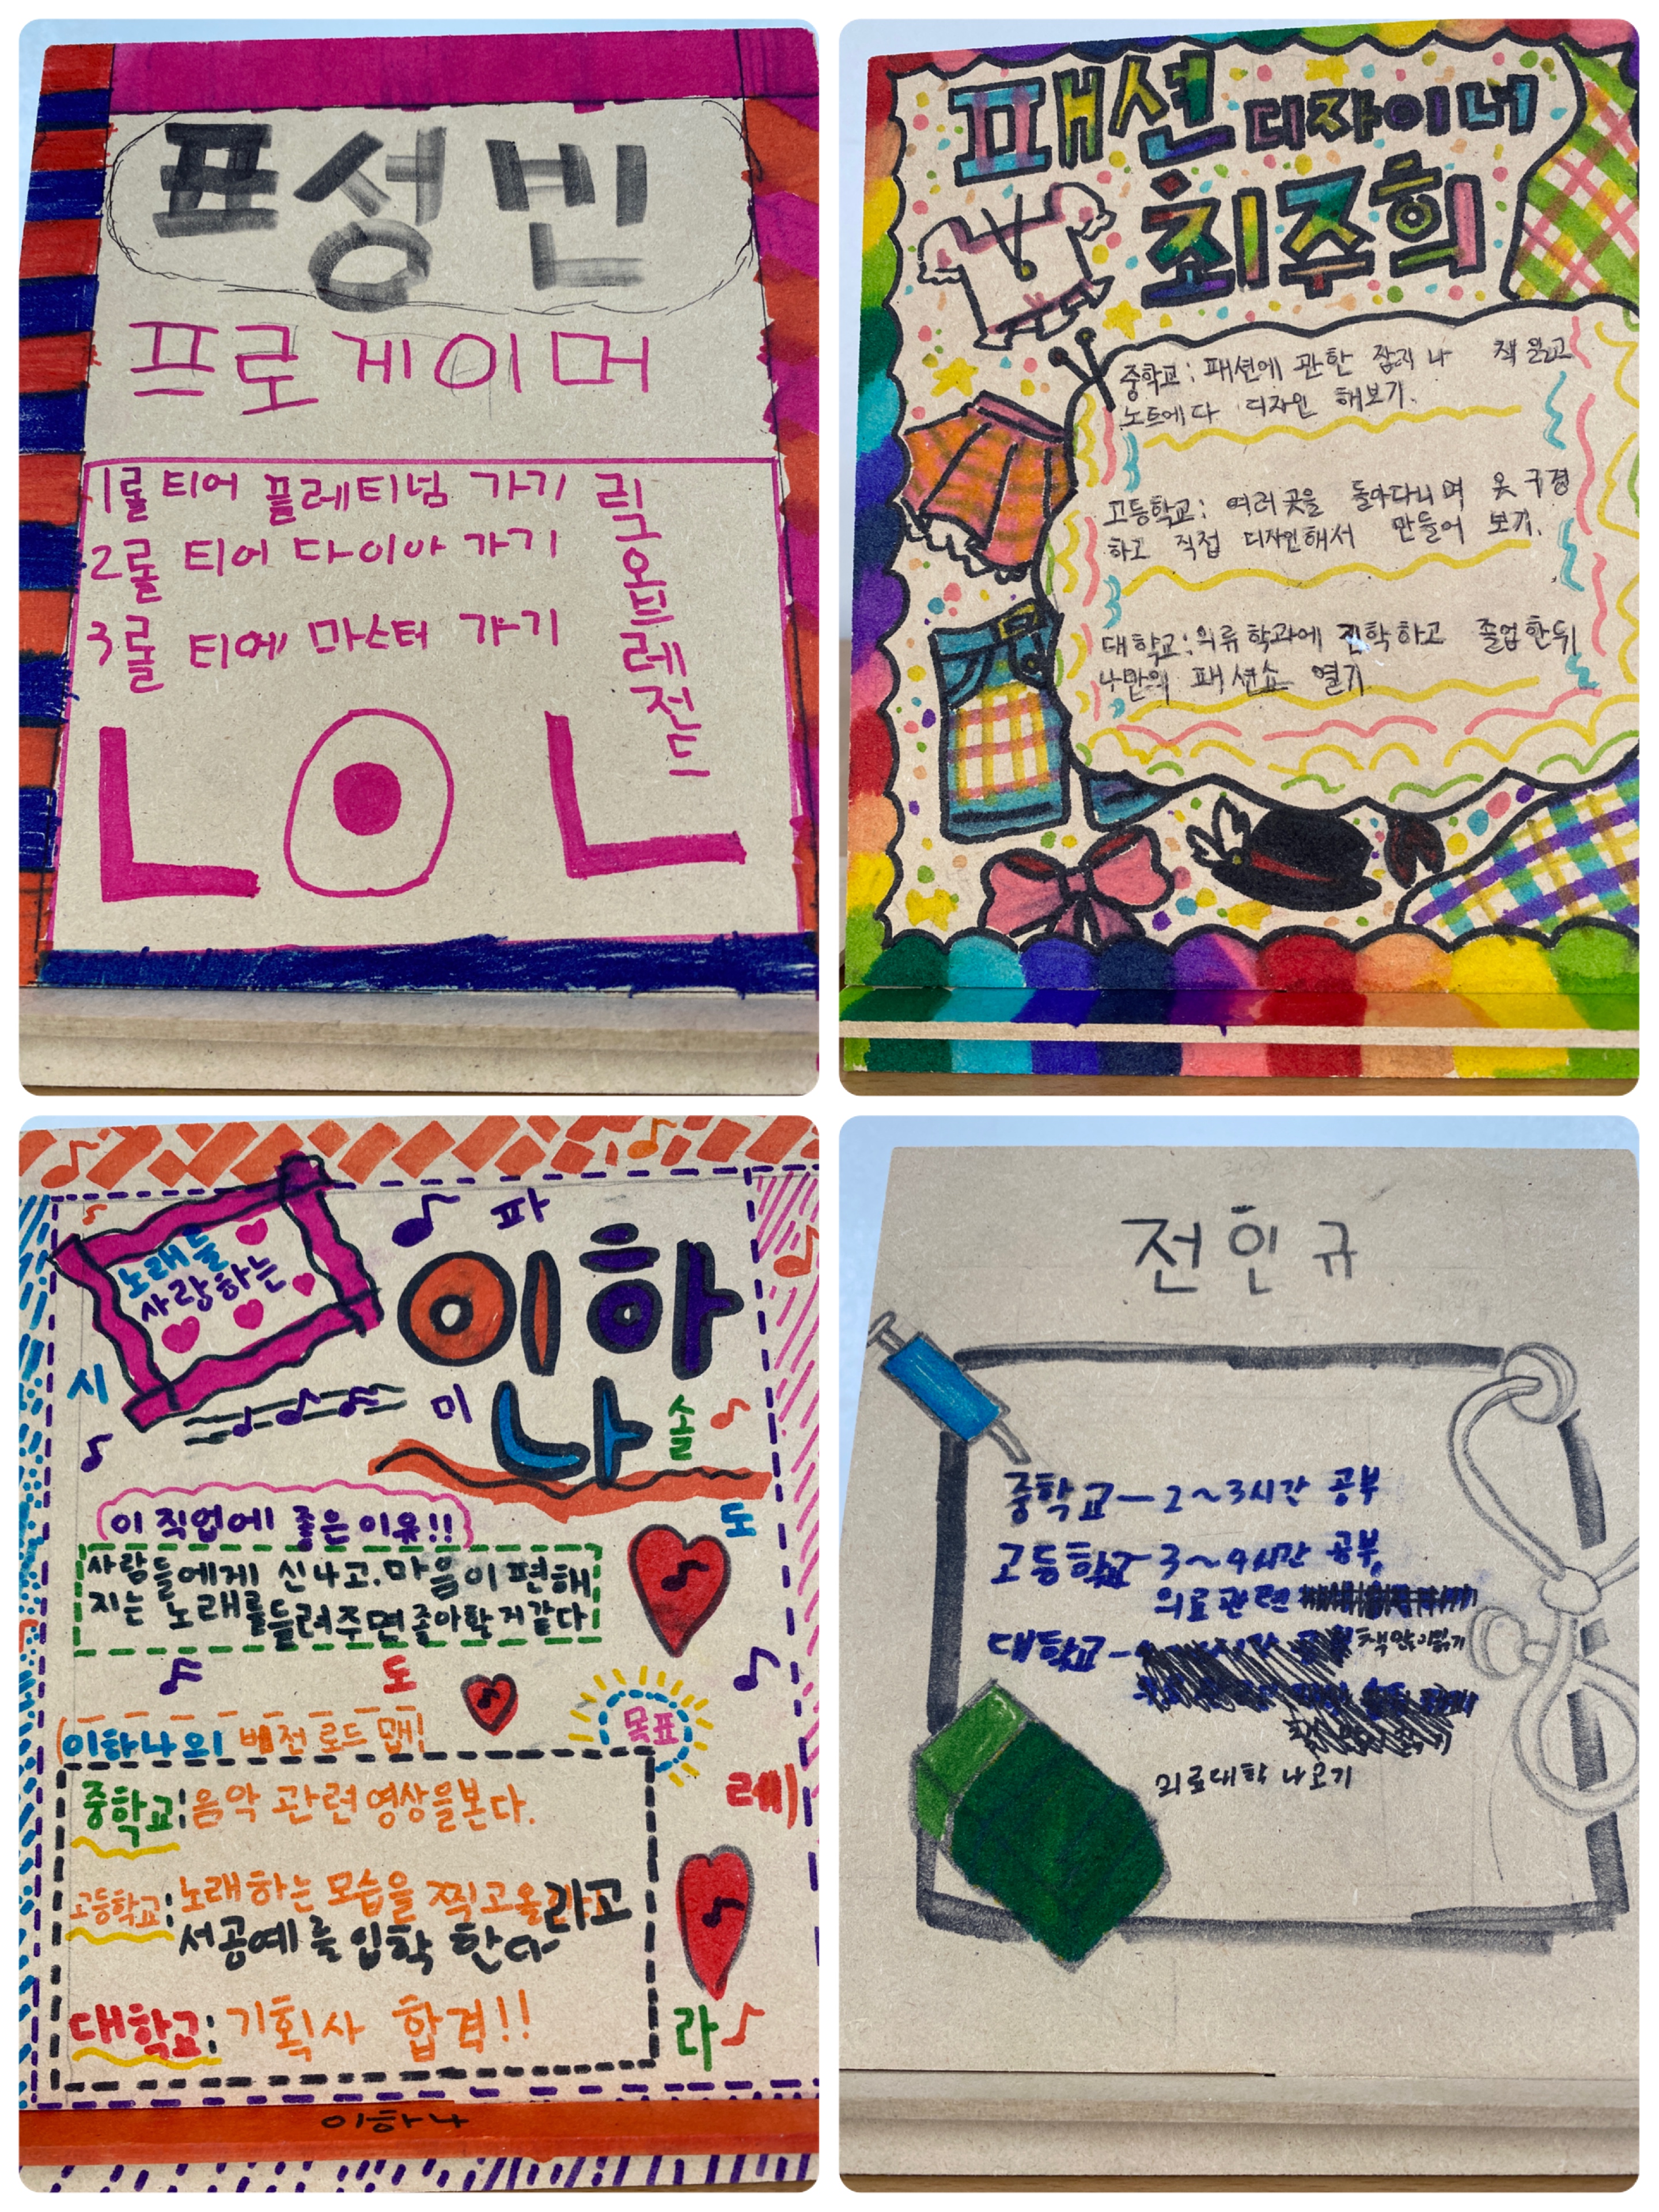 표성빈
프로게이머
1롤 티어 플레티넘 가기
2롤 티어 다이아 가기
3롤 티에 마스터 가기
리그오브레전드
LOL
패션 디자이너
최주희
중학교: 패션에 관한 잡지나 책 읽고
노트에다 디자인 해보기.
고등학교: 여러곳을 돌아다니며 옷구경
하고 직접 디자인해서 만들어 보기.
대학교:의류학과에 진학하고 졸업한뒤
나만의 패션쇼 열기
노래를
사랑하는
파
이하
나
시
미
솔
이 직업에 좋은이유!!
도
사람들에게 신나고.마음이편해
지는 노래를들려주면좋아할거같다
도
이하나의 비전로드맵!
목표
레
중학교:음악 관련영상을본다.
고등학교:노래하는모습을 찍고올라고
서공예를입학 한다
대학교: 기획사 합격!!
라
이하나
전인규
중학교-2~3시간 공부
고등학교-3~4시간 공부,
의료관련
대학교-
의료대학 나오기